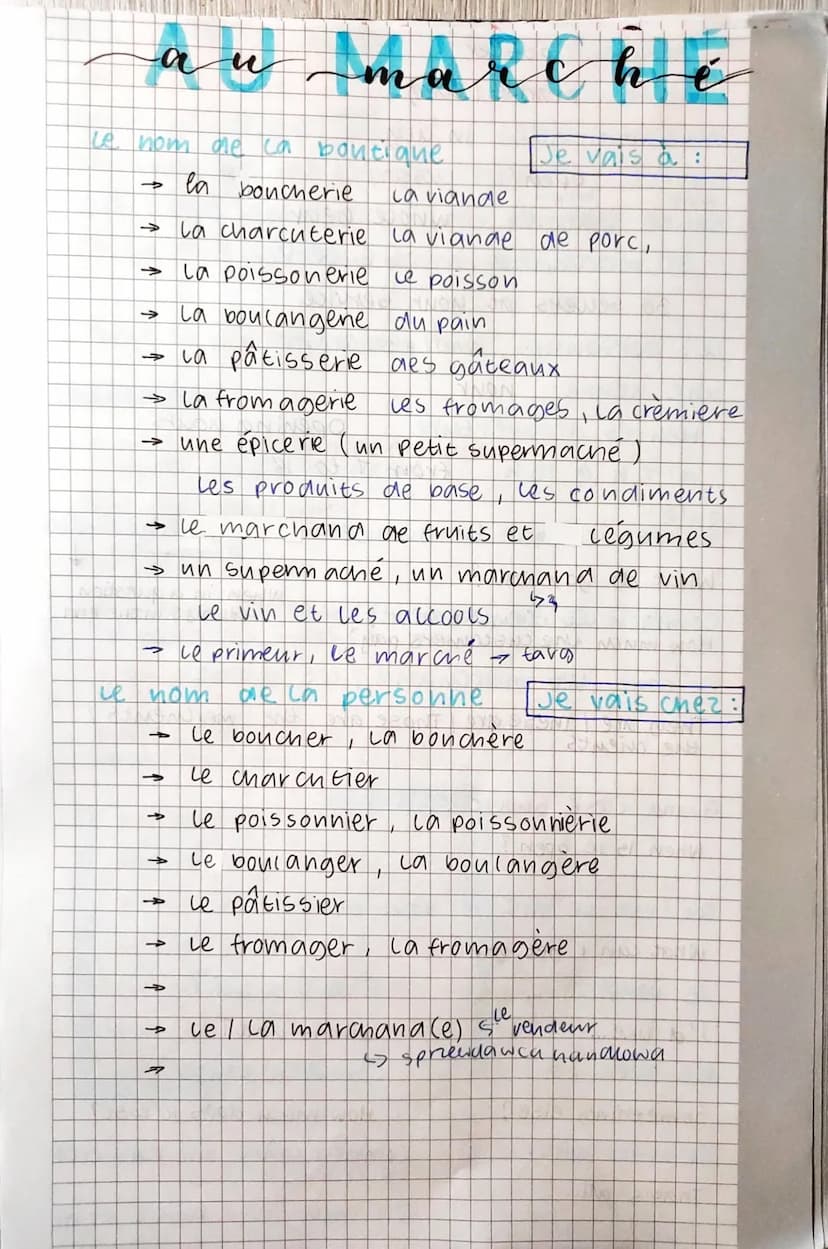 AU MARCHÉ
au marché
le nom de la boutique Je vais à :
→ la boucherie la viande
→ la charcuterie la viande de porc,
→ la poissonerie le poisson
→ la boulangerie du pain
→ la pâtisserie des gâteaux
→ la fromagerie les fromages, la crèmiere
→ une épicerie (un petit supermaché)
les produits de base, les condiments
→ le marchand de fruits et légumes
→ un supermaché, un marchand de vin
le vin et les alcools
→ le primeur, le marché → targ
le nom de la personne Je vais chez :
→ le boucher, la bouchère
→ le charcutier
→ le poissonnier, la poissonnièrie
→ le boulanger, la boulangère
→ le pâtissier
→ le fromager, la fromagère
→
→ le / la marchand(e) le vendeur
↳ sprzedawca handlowa
→